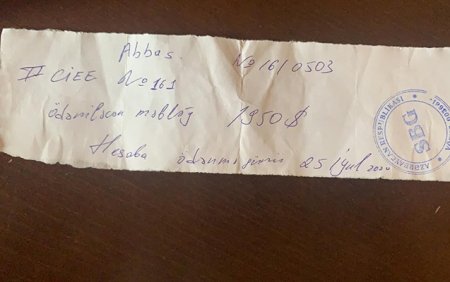 Abbas. № 16/0503
II CIEE № 161
Ödəniləcən məbləğ 1950 $
Hesaba ödənmə günü 25 iyul 2020
AZƏRBAYCAN RESPUBLİKASI
SBG